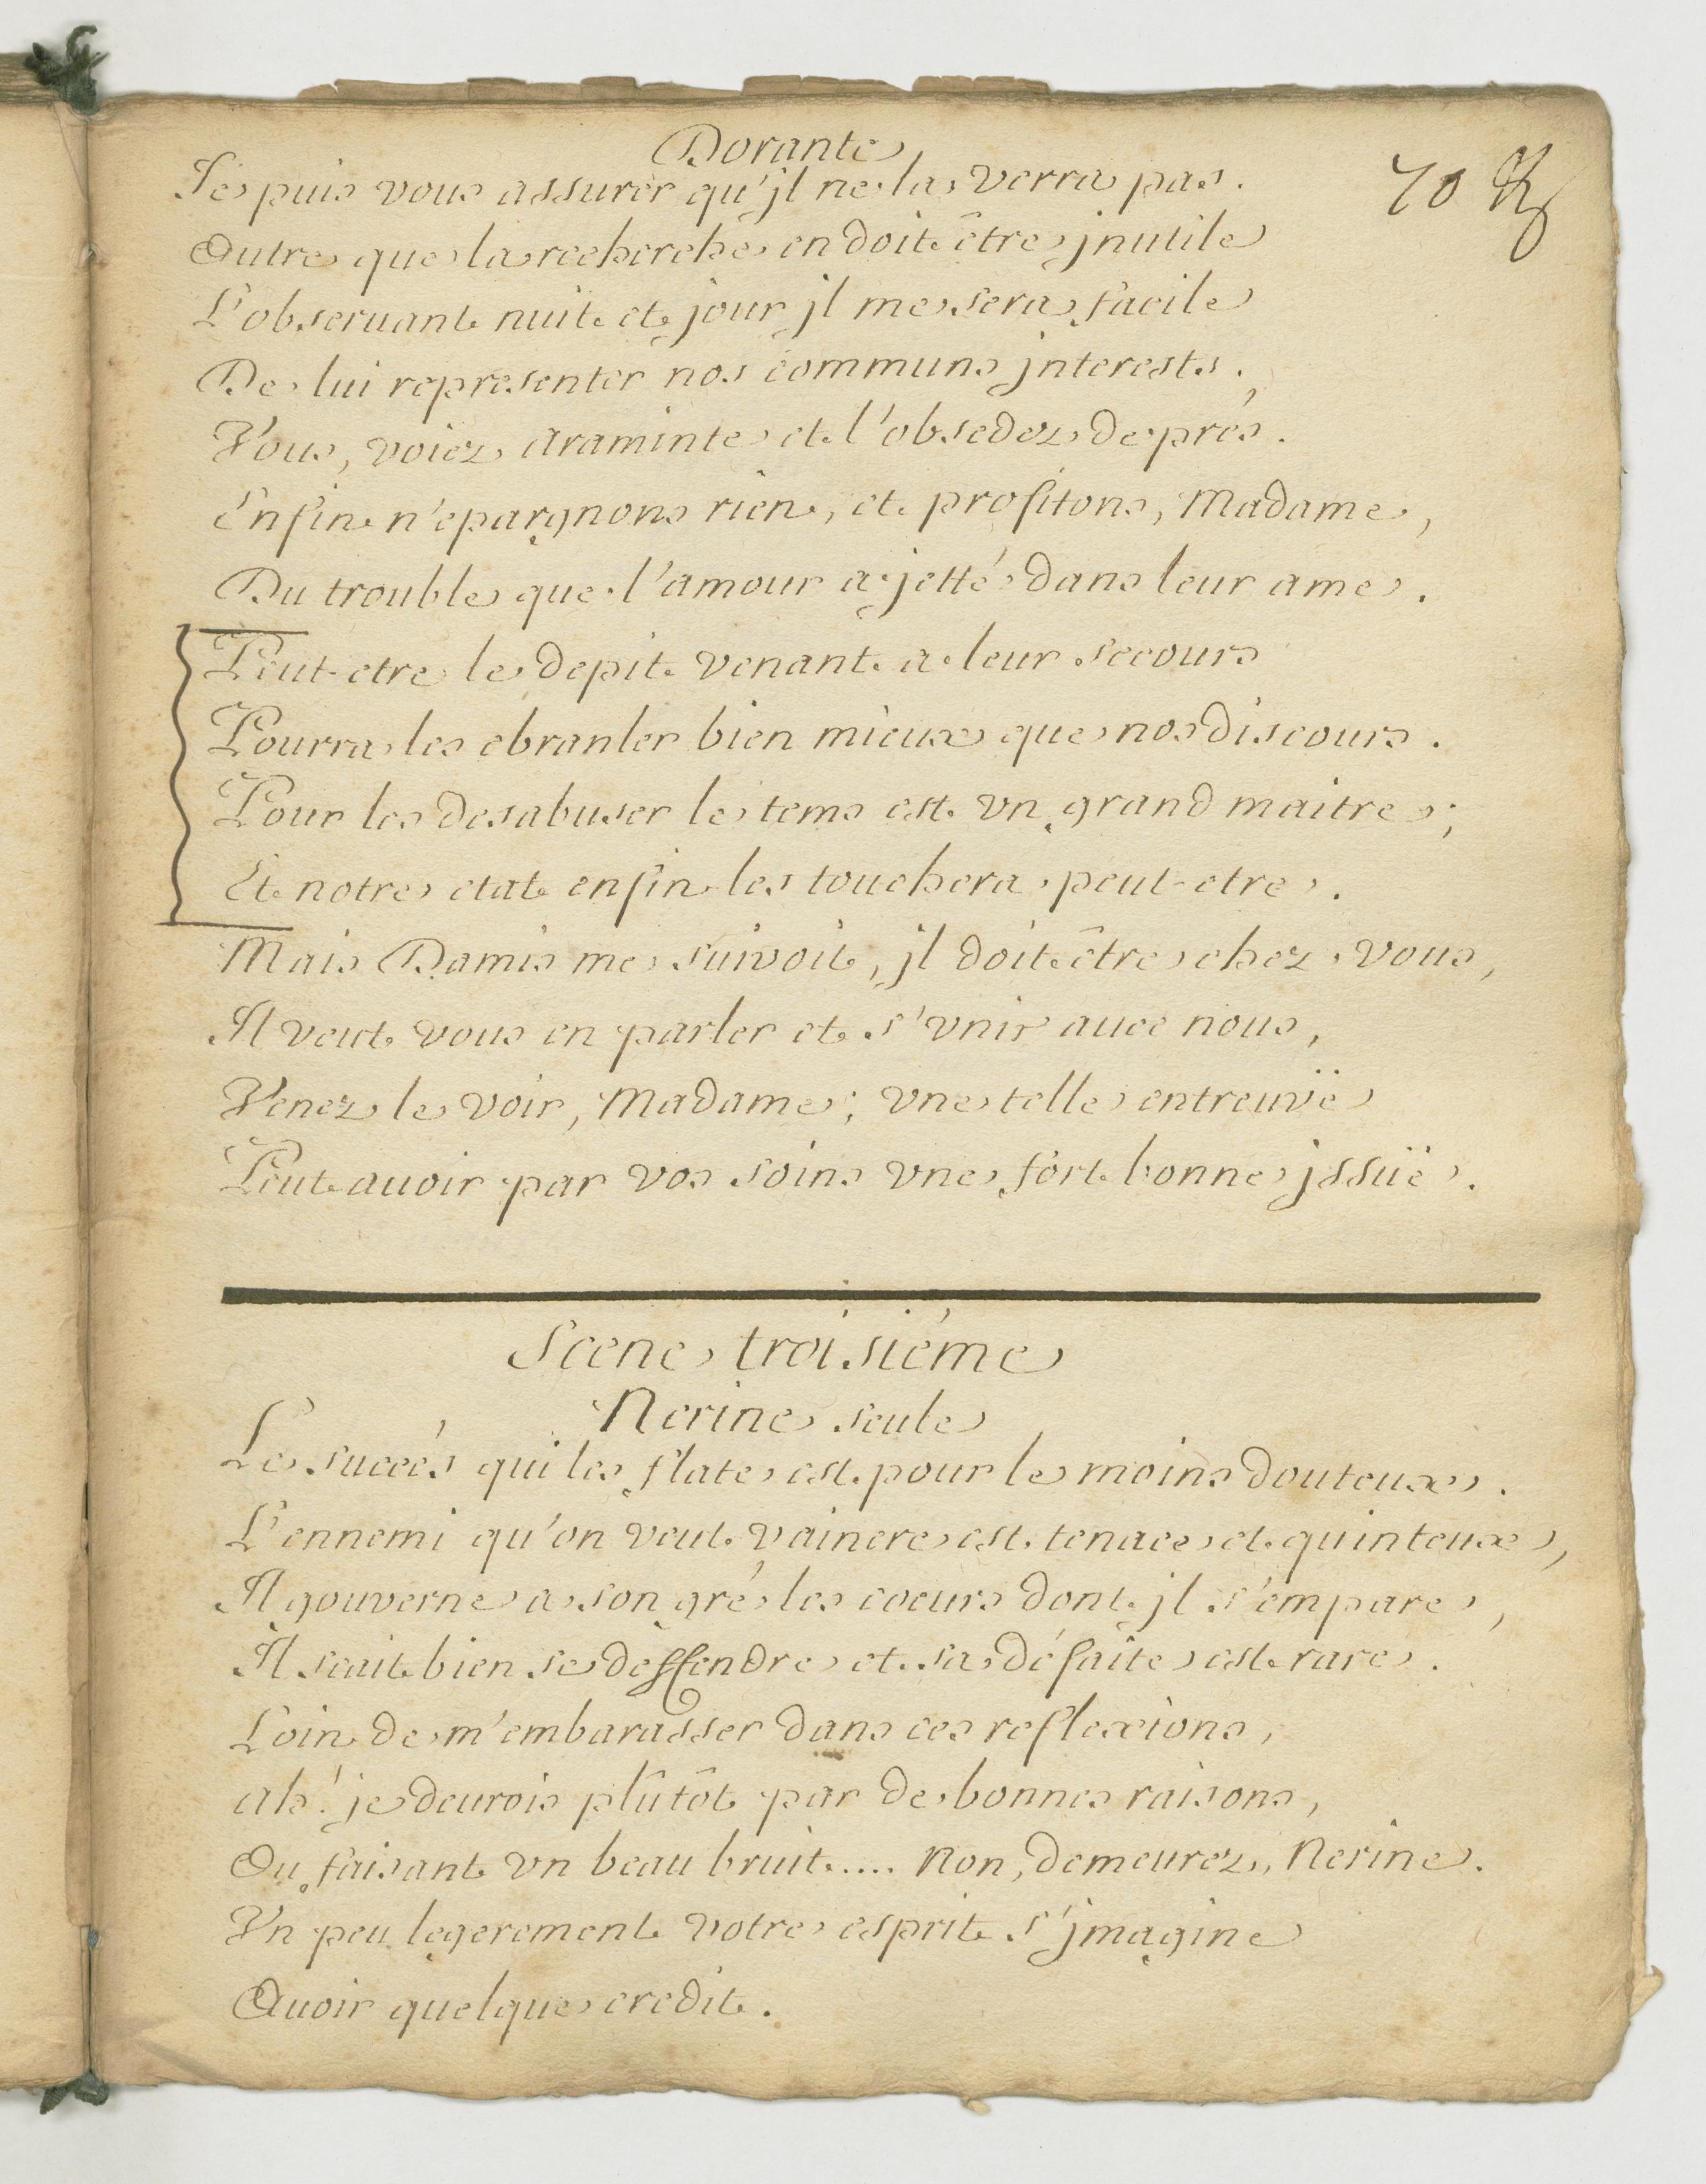 Dorante
70
Je puis vous assurer qu'jl ne la verra pas.
Outre que la recherche en doit être jnutile
L'obseruant nuit et jour jl me sera facile
De lui representer nos communs jnterests.
Vous, voiez araminte et l'obsedez de prés.
Enfin n'epargnons rien, et profitons, Madame,
Du trouble que l'amour a jetté dans leur ame.
Peut-etre le depit venant a leur secours
Pourra les ebranler bien mieux que nos discours.
Pour les desabuser le tems est vn grand maitre;
Et notre etat enfin les touchera peut-etre.
Mais Damis me suivoit, jl doit être chez vous,
Il veut vous en parler et s'vnir auec nous,
Venez le voir, Madame; vne telle entreuvë
Peut auoir par vos soins vne fort bonne jssuë.
Scene troisiéme
Nerine seule
Le succés qui les flate est pour le moins douteux.
L'ennemi qu'on veut vaincre est tenace et quinteux,
Il gouverne a son gré les coeurs dont jl s'empare,
Il scait bien se deffendre et sa défaite est rare.
Loin de m'embarasser dans ces reflexions,
ah! je deurois plûtôt par de bonnes raisons,
Ou faisant vn beau bruit..... Non, demeurez, Nerine.
Vn peu legerement votre esprit s'jmagine
Auoir quelque credit.